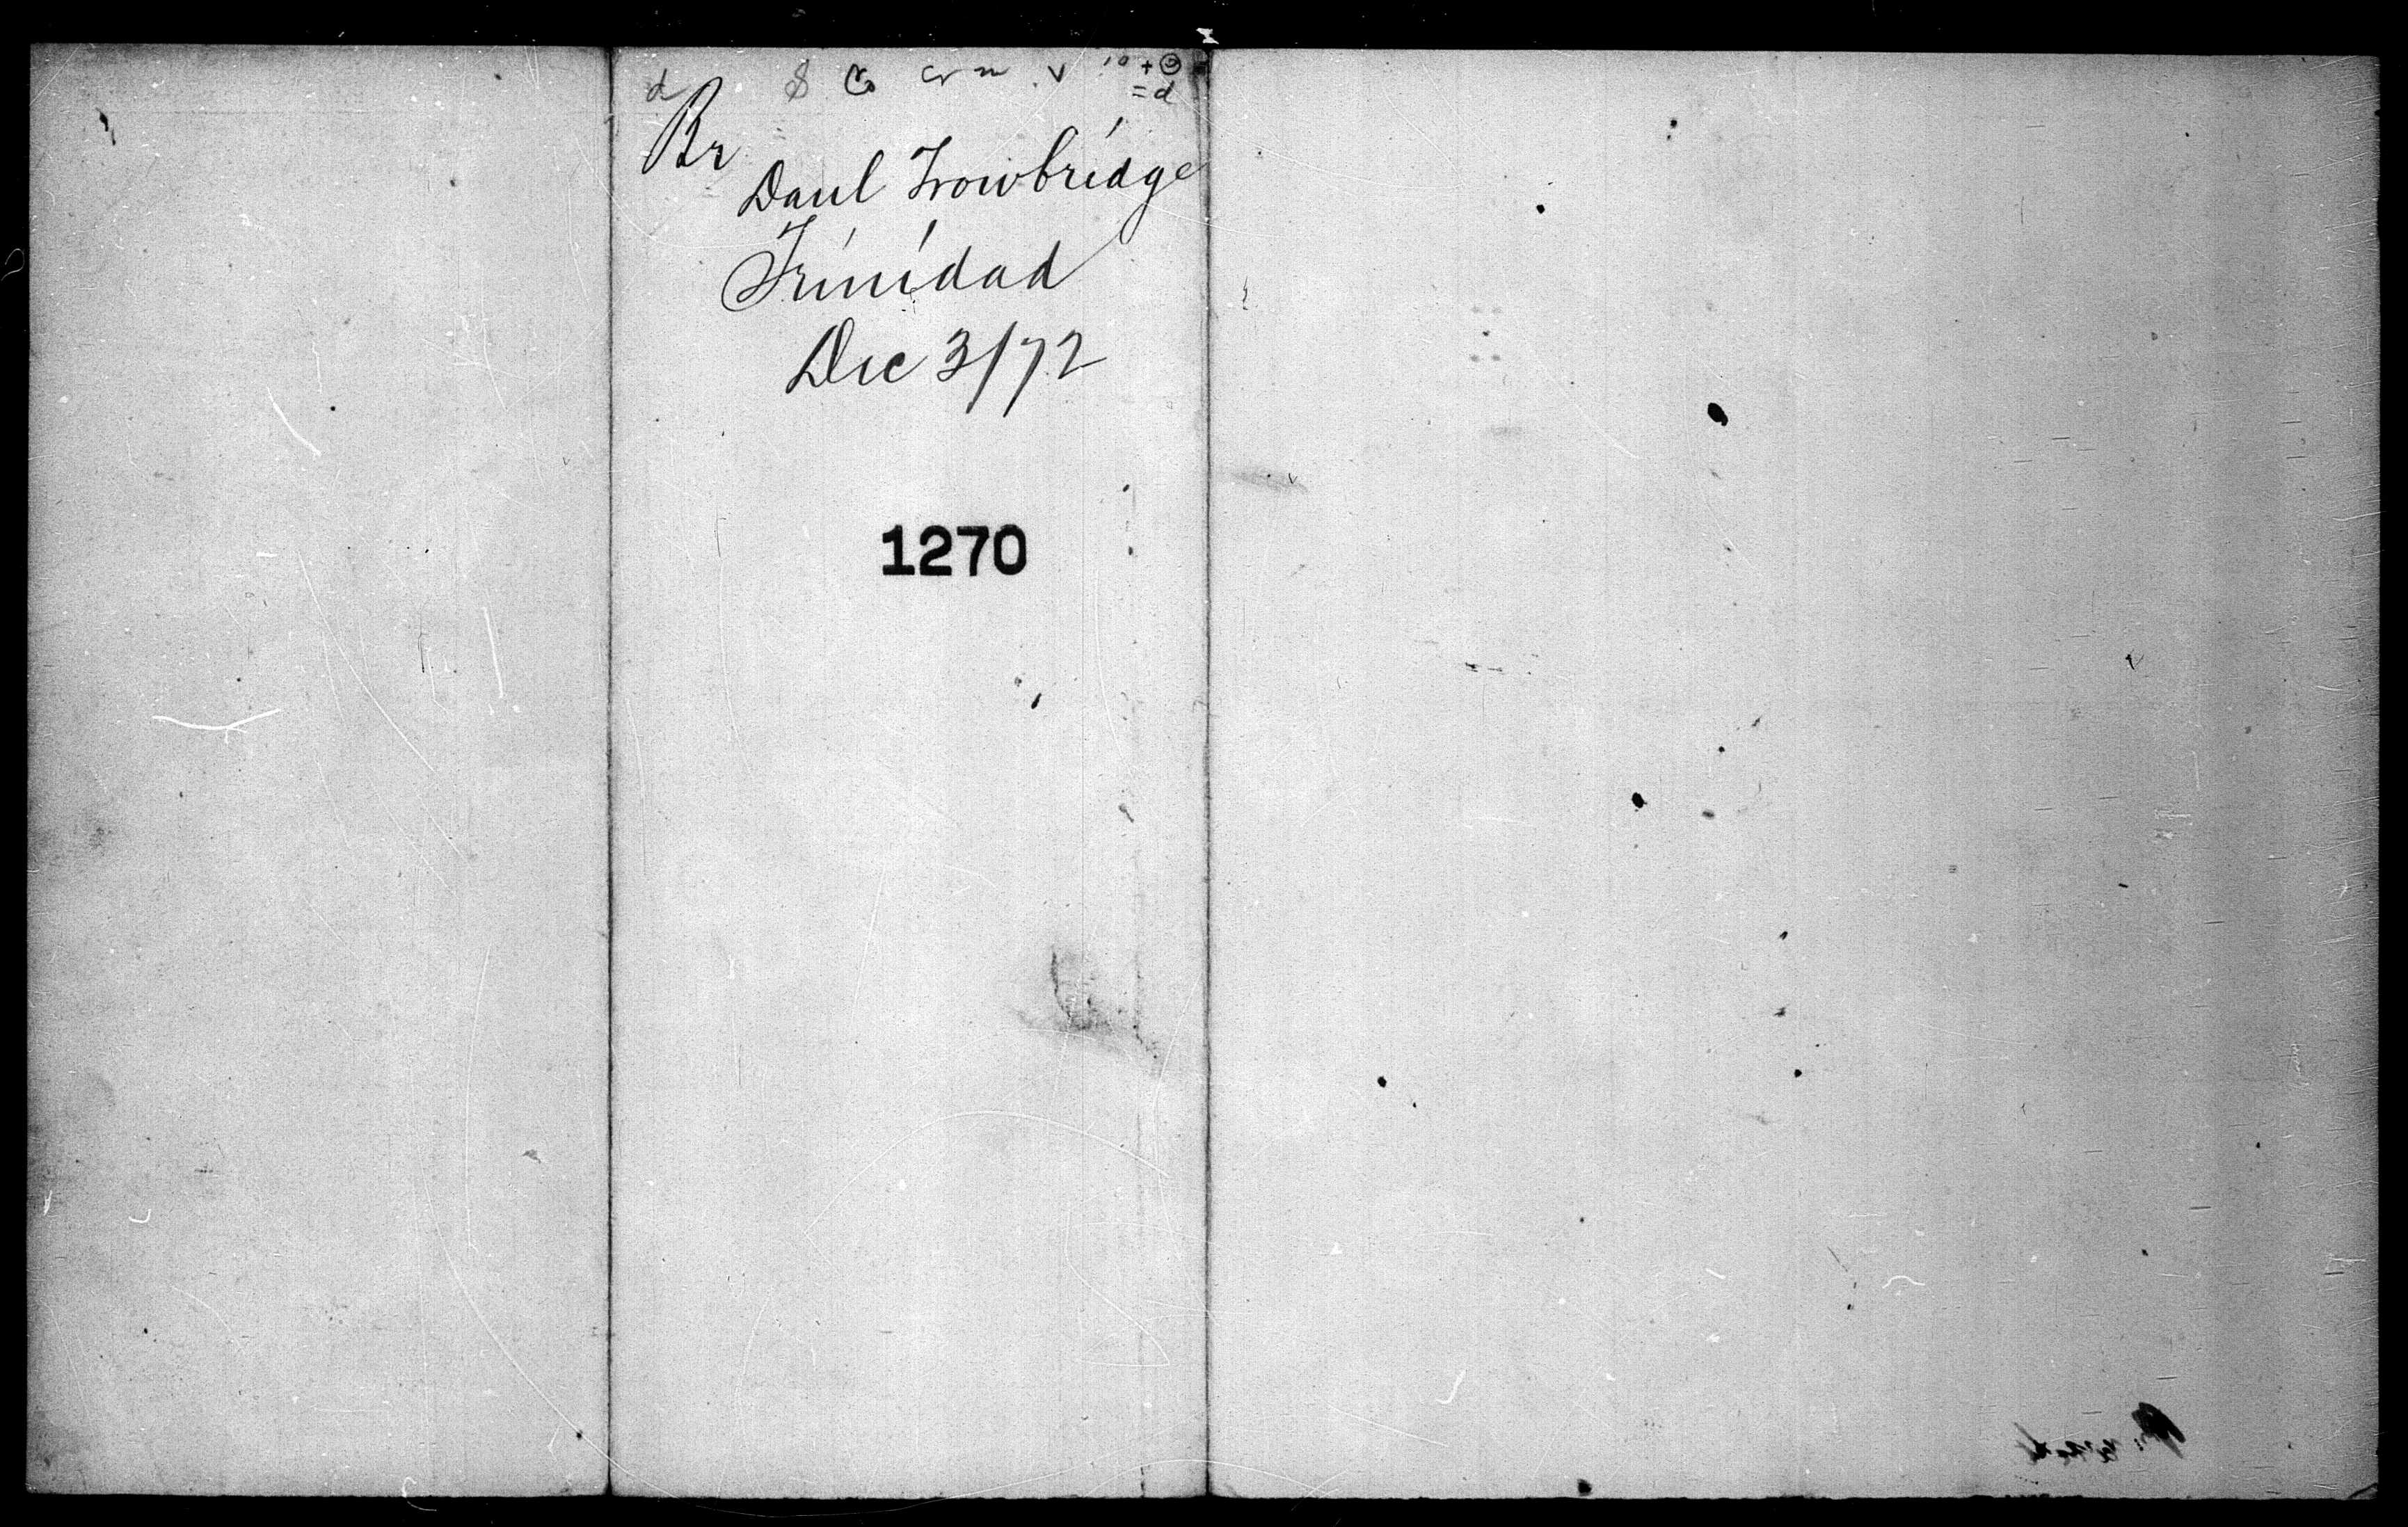 d $ Co Cr m v 10 + ③
= d
Br
Danl Trowbridge
Trinidad
Dec 3/72
1270